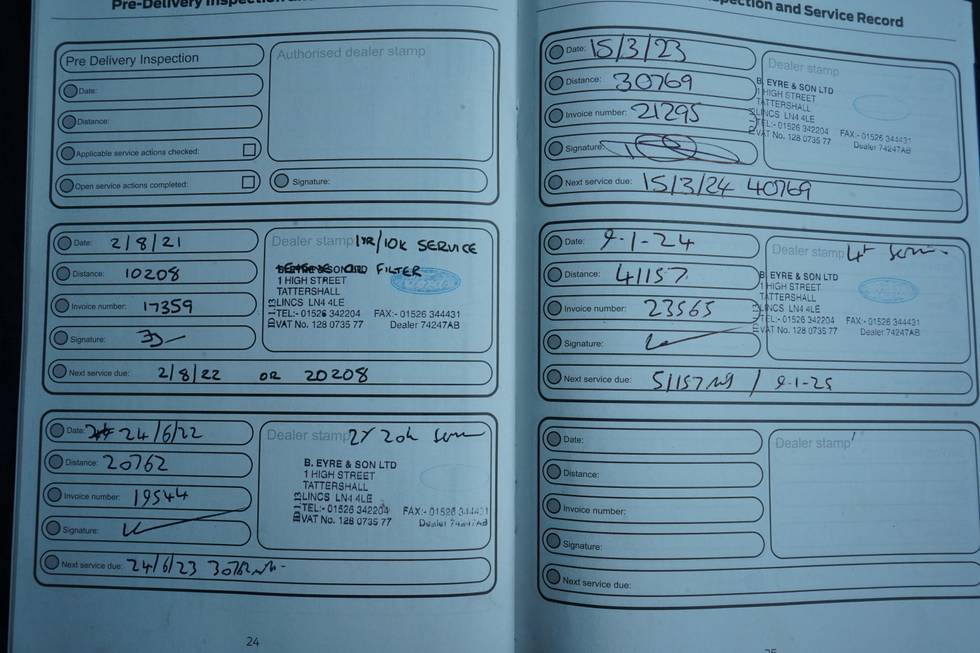 Pre-Delivery Inspection
Pre Delivery Inspection
Date:
Distance:
Applicable service actions checked:
Open service actions completed:
Authorised dealer stamp
Signature:
Date: 2/8/21
Distance: 10208
Invoice number: 17359
Signature:
Next service due: 2/8/22 OR 20208
Dealer stamp 1YR/10K SERVICE
FILTER
1 HIGH STREET
TATTERSHALL
LINCS LN4 4LE
TEL:- 01526 342204 FAX:- 01526 344431
VAT No. 128 0735 77 Dealer 74247AB
Date: 24/6/22
Distance: 20762
Invoice number: 19544
Signature:
Next service due: 24/6/23
Dealer stamp
B. EYRE & SON LTD
1 HIGH STREET
TATTERSHALL
LINCS LN4 4LE
TEL:- 01526 342204 FAX:- 01526 344431
VAT No. 128 0735 77 Dealer 74247AB
24
Inspection and Service Record
Date: 15/3/23
Distance: 30769
Invoice number: 21295
Signature:
Next service due: 15/3/24 40769
Dealer stamp
B. EYRE & SON LTD
1 HIGH STREET
TATTERSHALL
LINCS LN4 4LE
TEL:- 01526 342204 FAX:- 01526 344431
VAT No. 128 0735 77 Dealer 74247AB
Date: 9-1-24
Distance: 41157
Invoice number: 23565
Signature:
Next service due: 51157 / 9-1-25
Dealer stamp
B. EYRE & SON LTD
1 HIGH STREET
TATTERSHALL
LINCS LN4 4LE
TEL:- 01526 342204 FAX:- 01526 344431
VAT No. 128 0735 77 Dealer 74247AB
Date:
Distance:
Invoice number:
Signature:
Next service due:
Dealer stamp